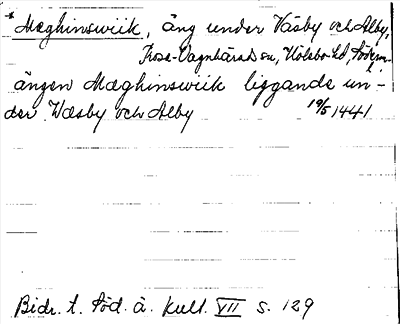 * Mæghinswiik, äng under Väsby och Alby,
Trosa-Vagnhärads sn, Hölebo hd, Söderm-
l.
ängen Mæghinswiik liggande un-
der Wæsby och Alby 19/5 1441
Bidr. t. Söd. ä. kult. VII s. 129